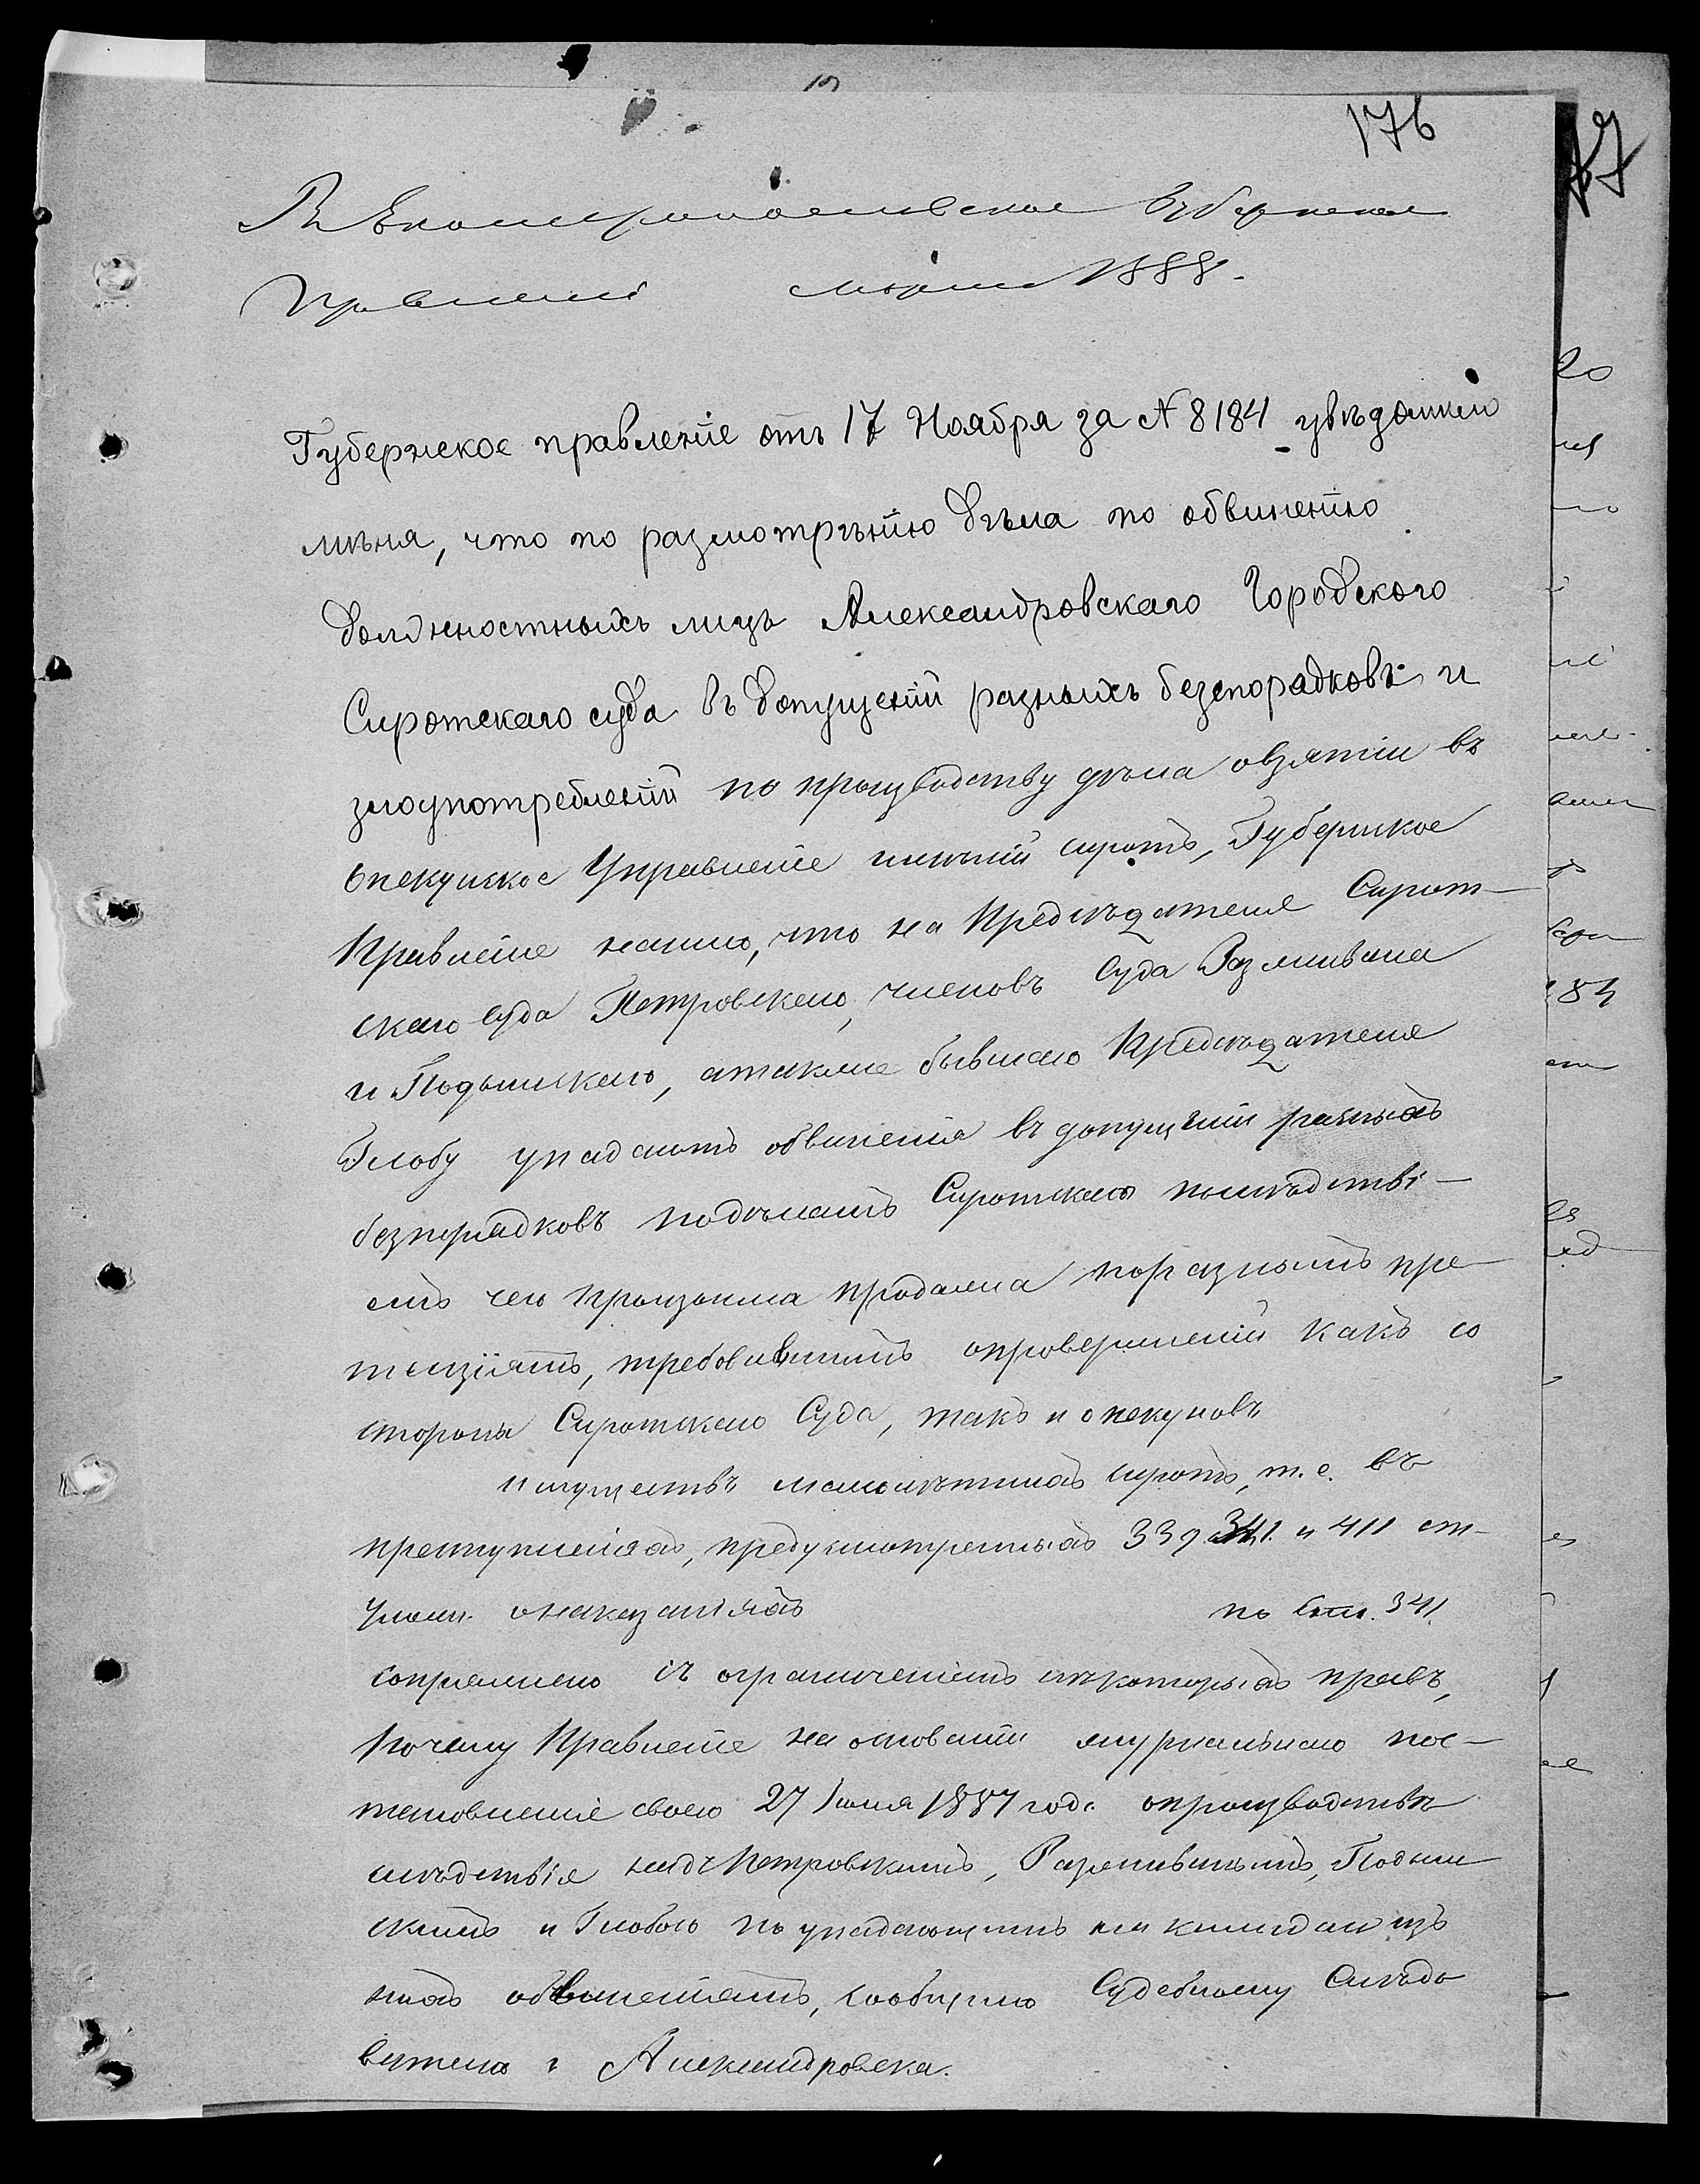 176
Въ Екатеринославское Губернское
Правленіе марта 1888.
Губернское правленіе отъ 17 Ноября за № 8184 увѣдомило
меня, что по размотрѣнію дѣла по обвиненію
должностныхъ лицъ Александровскаго Городского
Сиротскаго суда въ допущеніи разныхъ безпорадковъ и
злоупотребленій по производству дѣла овзятіи въ
опекунское Управленіе имѣній сиротъ, Губернское
Правленіе нашло, что на Предсѣдателя Сирот-
скаго суда Петровскаго, членовъ Суда
и Подъ, атакже бывшаго Предсѣдателя
Глобу упадаютъ обвиненія въ допущеніи разныхъ
безпорядковъ подѣламъ Сиротскаго послѣдстві-
емъ чего произошла продажа поразнымъ пре-
тензіямъ, требовавшимъ опроверженій какъ со
стороны Сиротскаго Суда, такъ и опекуновъ
имуществъ малолѣтнихъ сиротъ, т. е. въ
преступленіяхъ, предусмотренныхъ 339. 341. и 411 ст-
Улож. онаказаніяхъ по ст. 341.
сопряжено съ ограниченіемъ нѣкоторыхъ правъ,
почему Правленіе на основаніи журнальнаго пос-
тановленія своего 27 Іюля 1887 года опроизводствѣ
слѣдствія надъ Петровскимъ,
скимъ и Глобою по упадающимъ на каждаго изъ
нихъ обвиненіямъ, сообщило Судебному Слѣдо
вателю г Александровска.